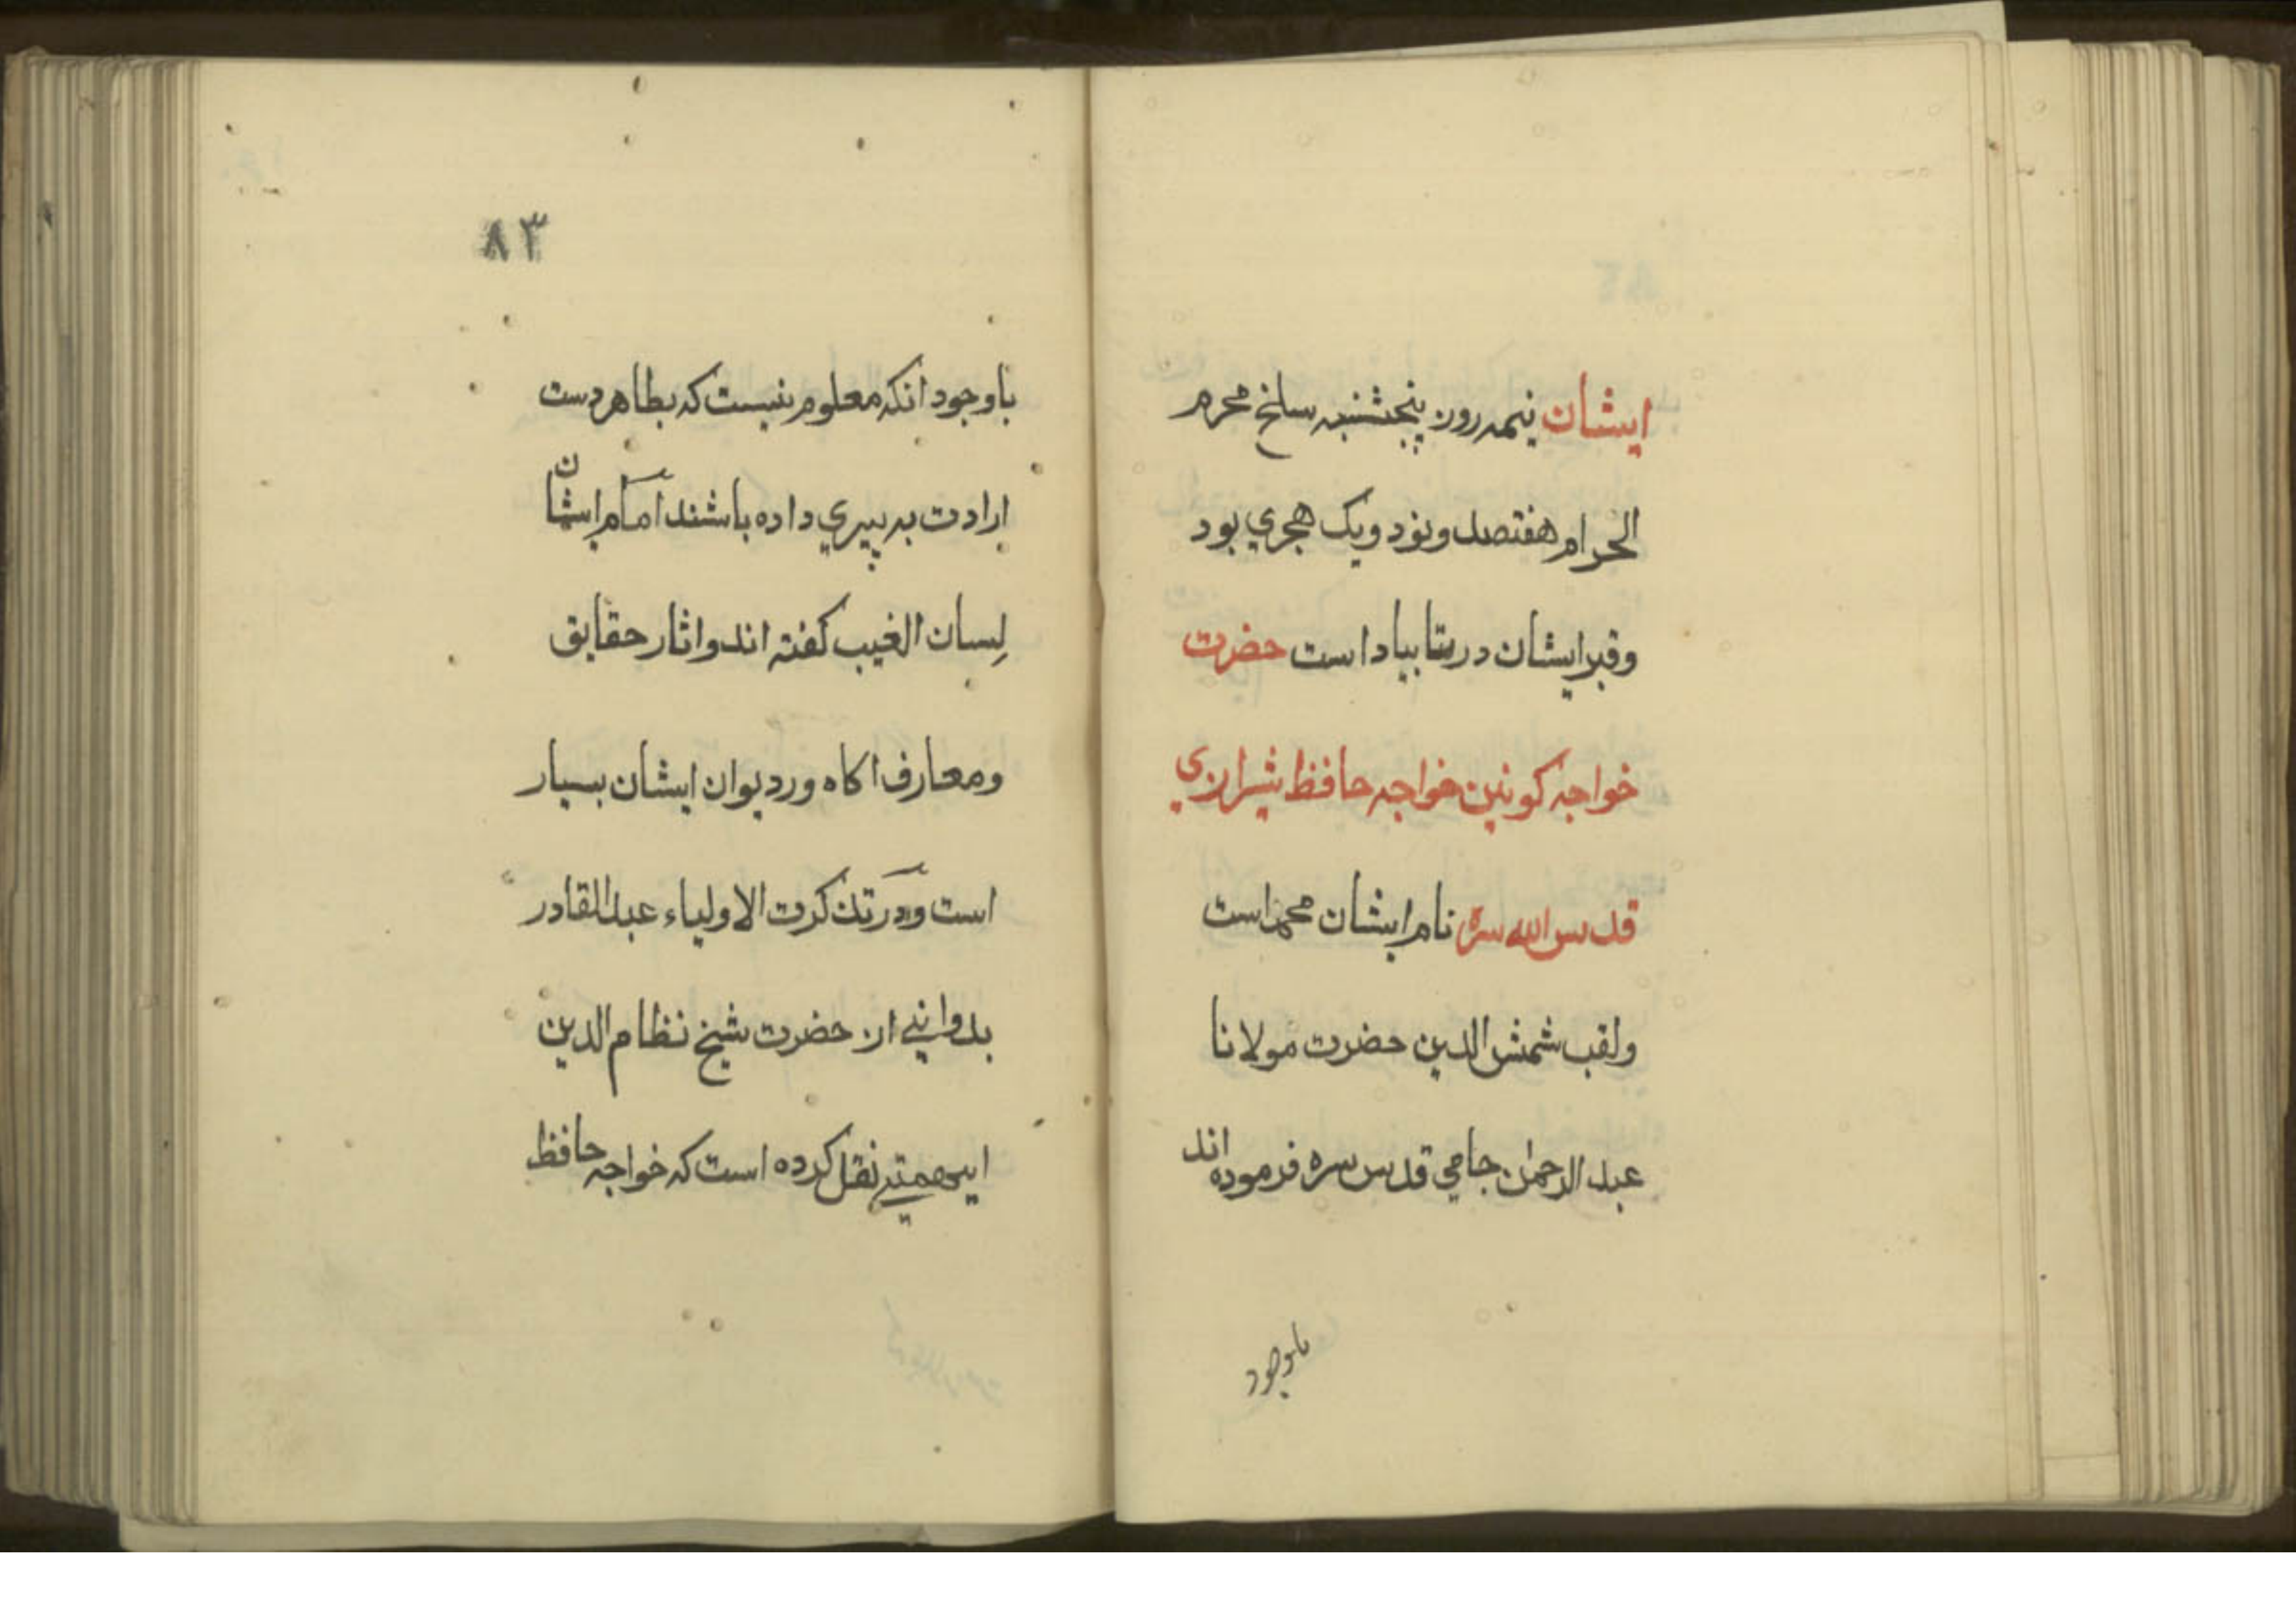 ایشان نیمه روز پنجشنبه سلخ محرم
الحرام هفتصد و نود و یک هجری بود
و قبر ایشان در بتابیاد است حضرت
خواجه کونین خواجه حافظ شیرازی
قدس الله سره نام ایشان محمد است
ولقب شمش الدین حضرت مولانا
عبد الرحمن جامی قدس سره فرموده اند
باوجود
۸۳
باوجود انکه معلوم نیست که بظاهر دست
ارادت به پیری داده باشند اما ایشان
لسان الغیب کفته اند و اثار حقایق
ومعارف اکاه ور دیوان ایشان بسیار
است ودر تذکرت الاولیاء عبد القادر
بدوانی از حضرت شیخ نظام الدین
نقل کرده است که خواجه حافظ